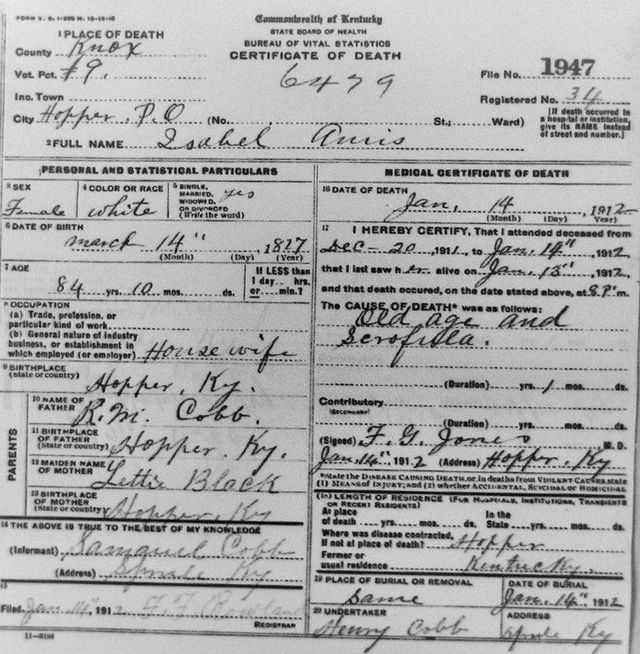 FORM V. S. 1-200 M. 10-12-10
Commonwealth of Kentucky
STATE BOARD OF HEALTH
BUREAU OF VITAL STATISTICS
CERTIFICATE OF DEATH
6479
1 PLACE OF DEATH
County Knox
Vot. Pct. #9.
Inc. Town
City Hopper, P.O (No. St.; Ward)
File No. 1947
Registered No. 34
[If death occurred in a hospital or institution, give its NAME instead of street and number.]
2 FULL NAME Isabel
PERSONAL AND STATISTICAL PARTICULARS
3 SEX
Female
4 COLOR OR RACE
white
5 SINGLE, MARRIED, WIDOWED OR DIVORCED (Write the word)
yes
6 DATE OF BIRTH
march 14" 1827
(Month) (Day) (Year)
7 AGE
84 yrs. 10 mos. ds.
If LESS than 1 day.... hrs. or.... min.?
8 OCCUPATION
(a) Trade, profession, or particular kind of work
(b) General nature of industry business, or establishment in which employed (or employer) House wife
9 BIRTHPLACE
(State or country)
Hopper, Ky.
PARENTS
10 NAME OF FATHER
R.M. Cobb.
11 BIRTHPLACE OF FATHER (State or country)
Hopper, Ky.
12 MAIDEN NAME OF MOTHER
Lettie Black
13 BIRTHPLACE OF MOTHER (State or country)
Hopper, Ky
14 THE ABOVE IS TRUE TO THE BEST OF MY KNOWLEDGE
(Informant) Samauel Cobb
(Address) Ky
15
Filed Jan 14", 1912
REGISTRAR
11-8184
MEDICAL CERTIFICATE OF DEATH
16 DATE OF DEATH
Jan. 14 1912
(Month) (Day) (Year)
17 I HEREBY CERTIFY, That I attended deceased from
Dec-20, 1911, to Jan. 14", 1912
that I last saw her alive on Jan. 13", 1912,
and that death occured, on the date stated above, at 8 P. m.
The CAUSE OF DEATH* was as follows:
Old age and
Scrofula.
(Duration) yrs. 1 mos. ds.
Contributory
(SECONDARY)
(Duration) yrs. mos. ds.
(Signed) F. G. Jones M. D.
Jan. 14", 1912 (Address) Hopper, Ky
*State the DISEASE CAUSING DEATH, or, in deaths from VIOLENT CAUSES, state (1) MEANS OF INJURY; and (2) whether ACCIDENTAL, SUICIDAL or HOMICIDAL
18 LENGTH OF RESIDENCE (FOR HOSPITALS, INSTITUTIONS, TRANSIENTS OR RECENT RESIDENTS)
At place of death yrs. mos. ds. In the State yrs. mos. ds.
Where was disease contracted, If not at place of death? Hopper
Former or usual residence Kentucky.
19 PLACE OF BURIAL OR REMOVAL
Same
DATE OF BURIAL
Jan. 14", 1912
20 UNDERTAKER
Henry Cobb
ADDRESS
Ky